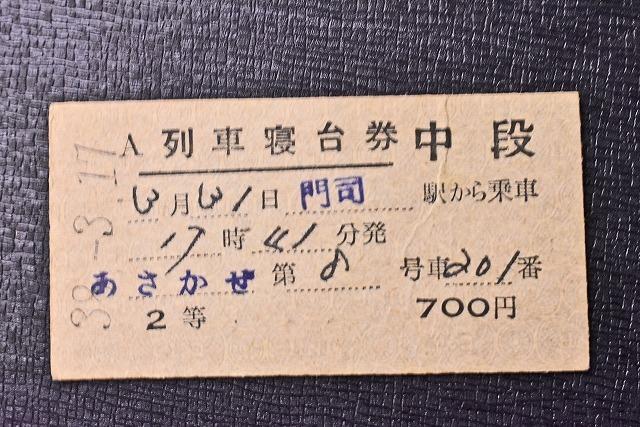 A 列車寝台券 中段
3月31日 門司 駅から乗車
17時41分発
あさかぜ 第8号車201番
2等 700円
38-3.17